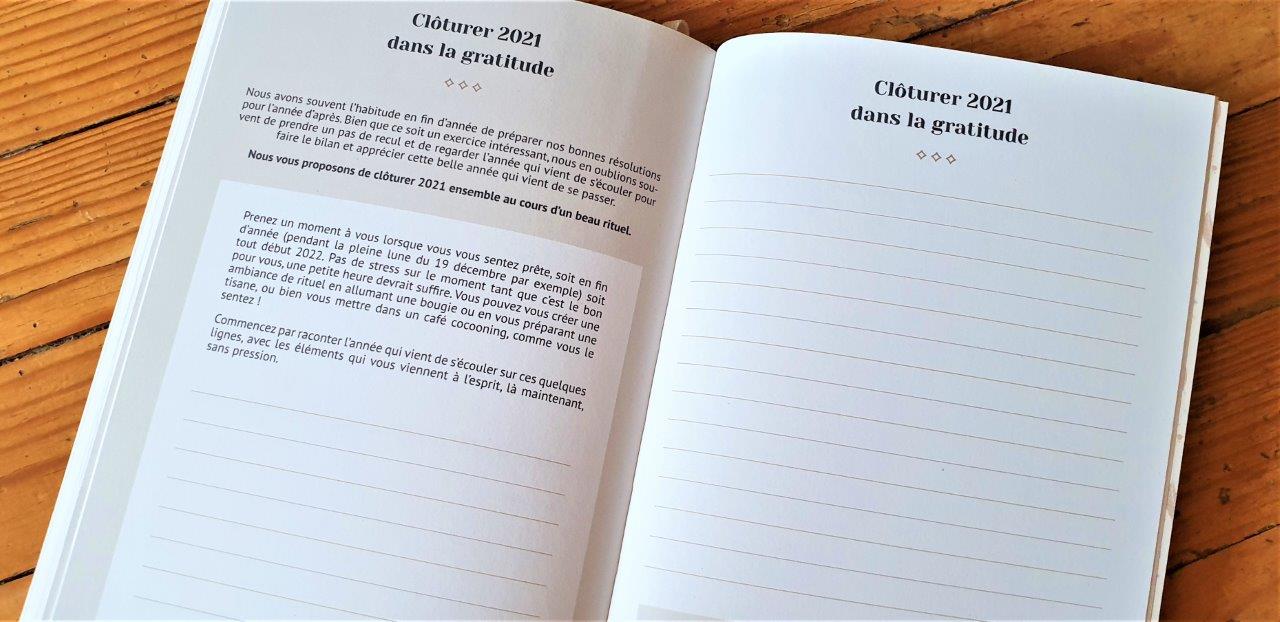 Clôturer 2021
dans la gratitude
Nous avons souvent l'habitude en fin d'année de préparer nos bonnes résolutions
pour l'année d'après. Bien que ce soit un exercice intéressant, nous en oublions sou-
vent de prendre un pas de recul et de regarder l'année qui vient de s'écouler pour
faire le bilan et apprécier cette belle année qui vient de se passer.
Nous vous proposons de clôturer 2021 ensemble au cours d'un beau rituel.
Prenez un moment à vous lorsque vous vous sentez prête, soit en fin
d'année (pendant la pleine lune du 19 décembre par exemple) soit
tout début 2022. Pas de stress sur le moment tant que c'est le bon
pour vous, une petite heure devrait suffire. Vous pouvez vous créer une
ambiance de rituel en allumant une bougie ou en vous préparant une
tisane, ou bien vous mettre dans un café cocooning, comme vous le
sentez !
Commencez par raconter l'année qui vient de s'écouler sur ces quelques
lignes, avec les éléments qui vous viennent à l'esprit, là maintenant,
sans pression.
Clôturer 2021
dans la gratitude